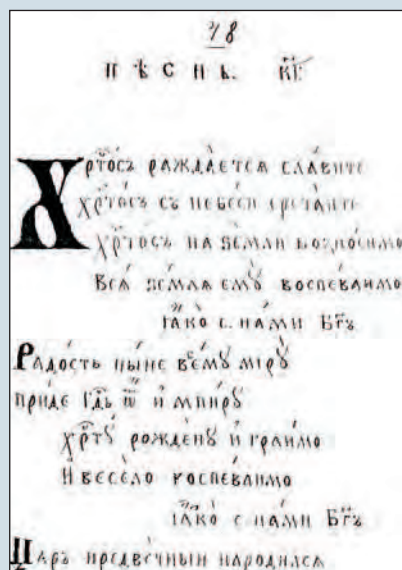 78
ПѢСНЬ. К҃Г
Хрⷭ҇то́съ ражда́ется сла́вите
хрⷭ҇то́съ съ небесѝ срѣта́ите
хрⷭ҇то́съ на землѝ возноси́мо
Всѧ̀ землѧ̀ емꙋ̀ воспѣва́имо
ꙗ҆́ко с на́ми Бг҃ъ
Ра́дость ны́не всемꙋ̀ мі́рꙋ
прі́де Гдⷭ҇ь и
хрⷭ҇тꙋ̀ рожде́нꙋ и гра́имо
И ве́село воспѣва́имо
ꙗ҆́ко с на́ми Бг҃ъ
Царь предвѣ́чный народи́лсѧ